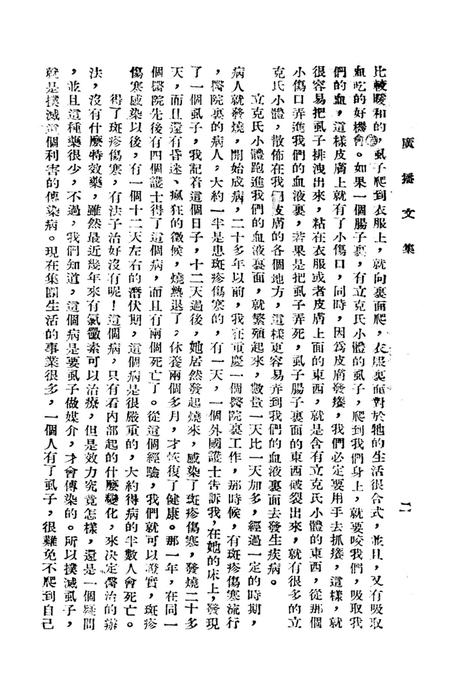 廣播文集
一一
比較暖和的，虱子爬到衣服上，就向裏面爬，衣服裏面對於牠的生活很合式，並且，又有吸取
血吃的好機會。如果一個腸子裏，有立克氏小體的虱子，爬到我們身上，就要咬我們，吸取我
們的血，這樣皮膚上就有了小傷口，同時，因爲皮膚發癢，我們必定要用手去抓癢，這樣，就
很容易把虱子排洩出來，粘在衣服或者皮膚上面的東西，就是含有立克氏小體的東西，從那個
小傷口弄進我們的血液裏，若果是把虱子弄死，虱子腸子裏面的東西破裂出來，就有很多的立
克氏小體，散佈在我們皮膚的各個地方，這樣更容易弄到我們的血液裏面去發生疾病。
立克氏小體跑進我們的血液裏面，就繁殖起來，數量一天比一天加多，經過一定的時期，
病人就發燒，開始成病，二十多年以前，我在重慶一個醫院裏工作，那時候，有斑疹傷寒流行
，醫院裏的病人，大約一半是患斑疹傷寒的，有一天，一個外國護士告訴我，在她的床上，發現
了一個虱子，我記着這個日子，十二天過後，她居然發起燒來，感染了斑疹傷寒，發燒二十多
天，而且還有昏迷、瘋狂的徵候，燒熱退了，休養兩個多月，才恢復了健康。那一年，在同一
個醫院先後有四個護士得了這個病，而且有兩個死亡了。從這個經驗，我們就可以證實，斑疹
傷寒感染以後，有一個十二天左右的潛伏期，這個病是很嚴重的，大約得病的半數人會死亡。
得了斑疹傷寒，有法子治好沒有呢！這個病，只有看內部起的什麼變化，來決定醫治的辦
法，沒有什麼特效藥，雖然最近幾年來有氯黴素可以治療，但是效力究竟怎樣，還是一個疑問
，並且這種藥很少，不過，我們知道，這個病是要虱子做媒介，才會傳染的。所以撲滅虱子，
就是撲滅這個利害的傳染病。現在集團生活的事業很多，一個人有了虱子，很難免不爬到自己